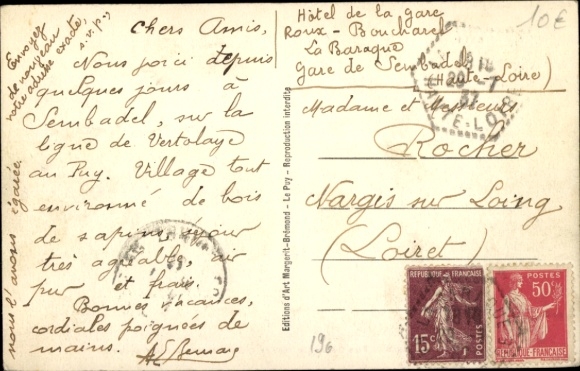 Chers Amis,
Nous voici depuis
quelques jours à
Sembadel, sur la
ligne de Vertolaye
au Puy. Village tout
environné de bois
de sapins, séjour
très agréable, air
pur et frais.
Bonnes vacances,
cordiales poignées de
mains.
Envoyez
de nouveau
votre adresse exacte,
s.v.p.
nous l'avons égarée
Hôtel de la gare
Roux-Boucharel
La Baraque
Gare de Sembadel
(Haute-Loire)
10€
Madame et Messieurs
Rocher
Nargis sur Loing
(Loiret)
Editions d'Art Margerit-Brémond - Le Puy - Reproduction interdite
196
REPUBLIQUE FRANÇAISE
15c
POSTES
POSTES
50c
REPUBLIQUE FRANÇAISE